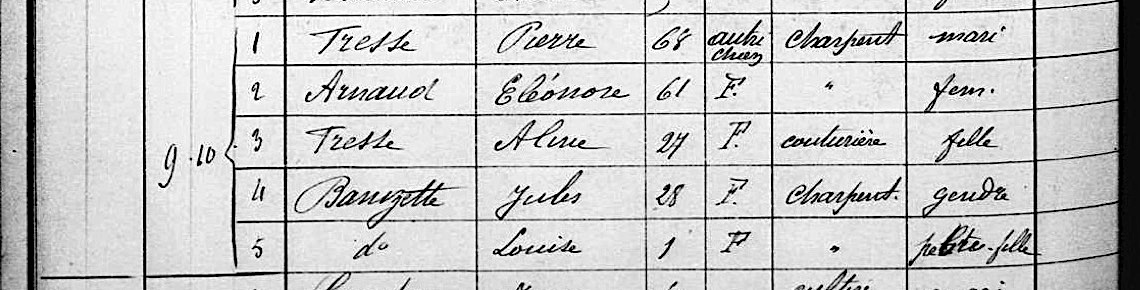 1 Tresse Pierre 68 autri chien charpent mari
2 Arnaud Eléonore 61 F. " fem.
9 10 3 Tresse Aline 27 F. couturière fille
4 Banizette Jules 28 F. charpent. gendre
5 do Louise 1 F " petite-fille